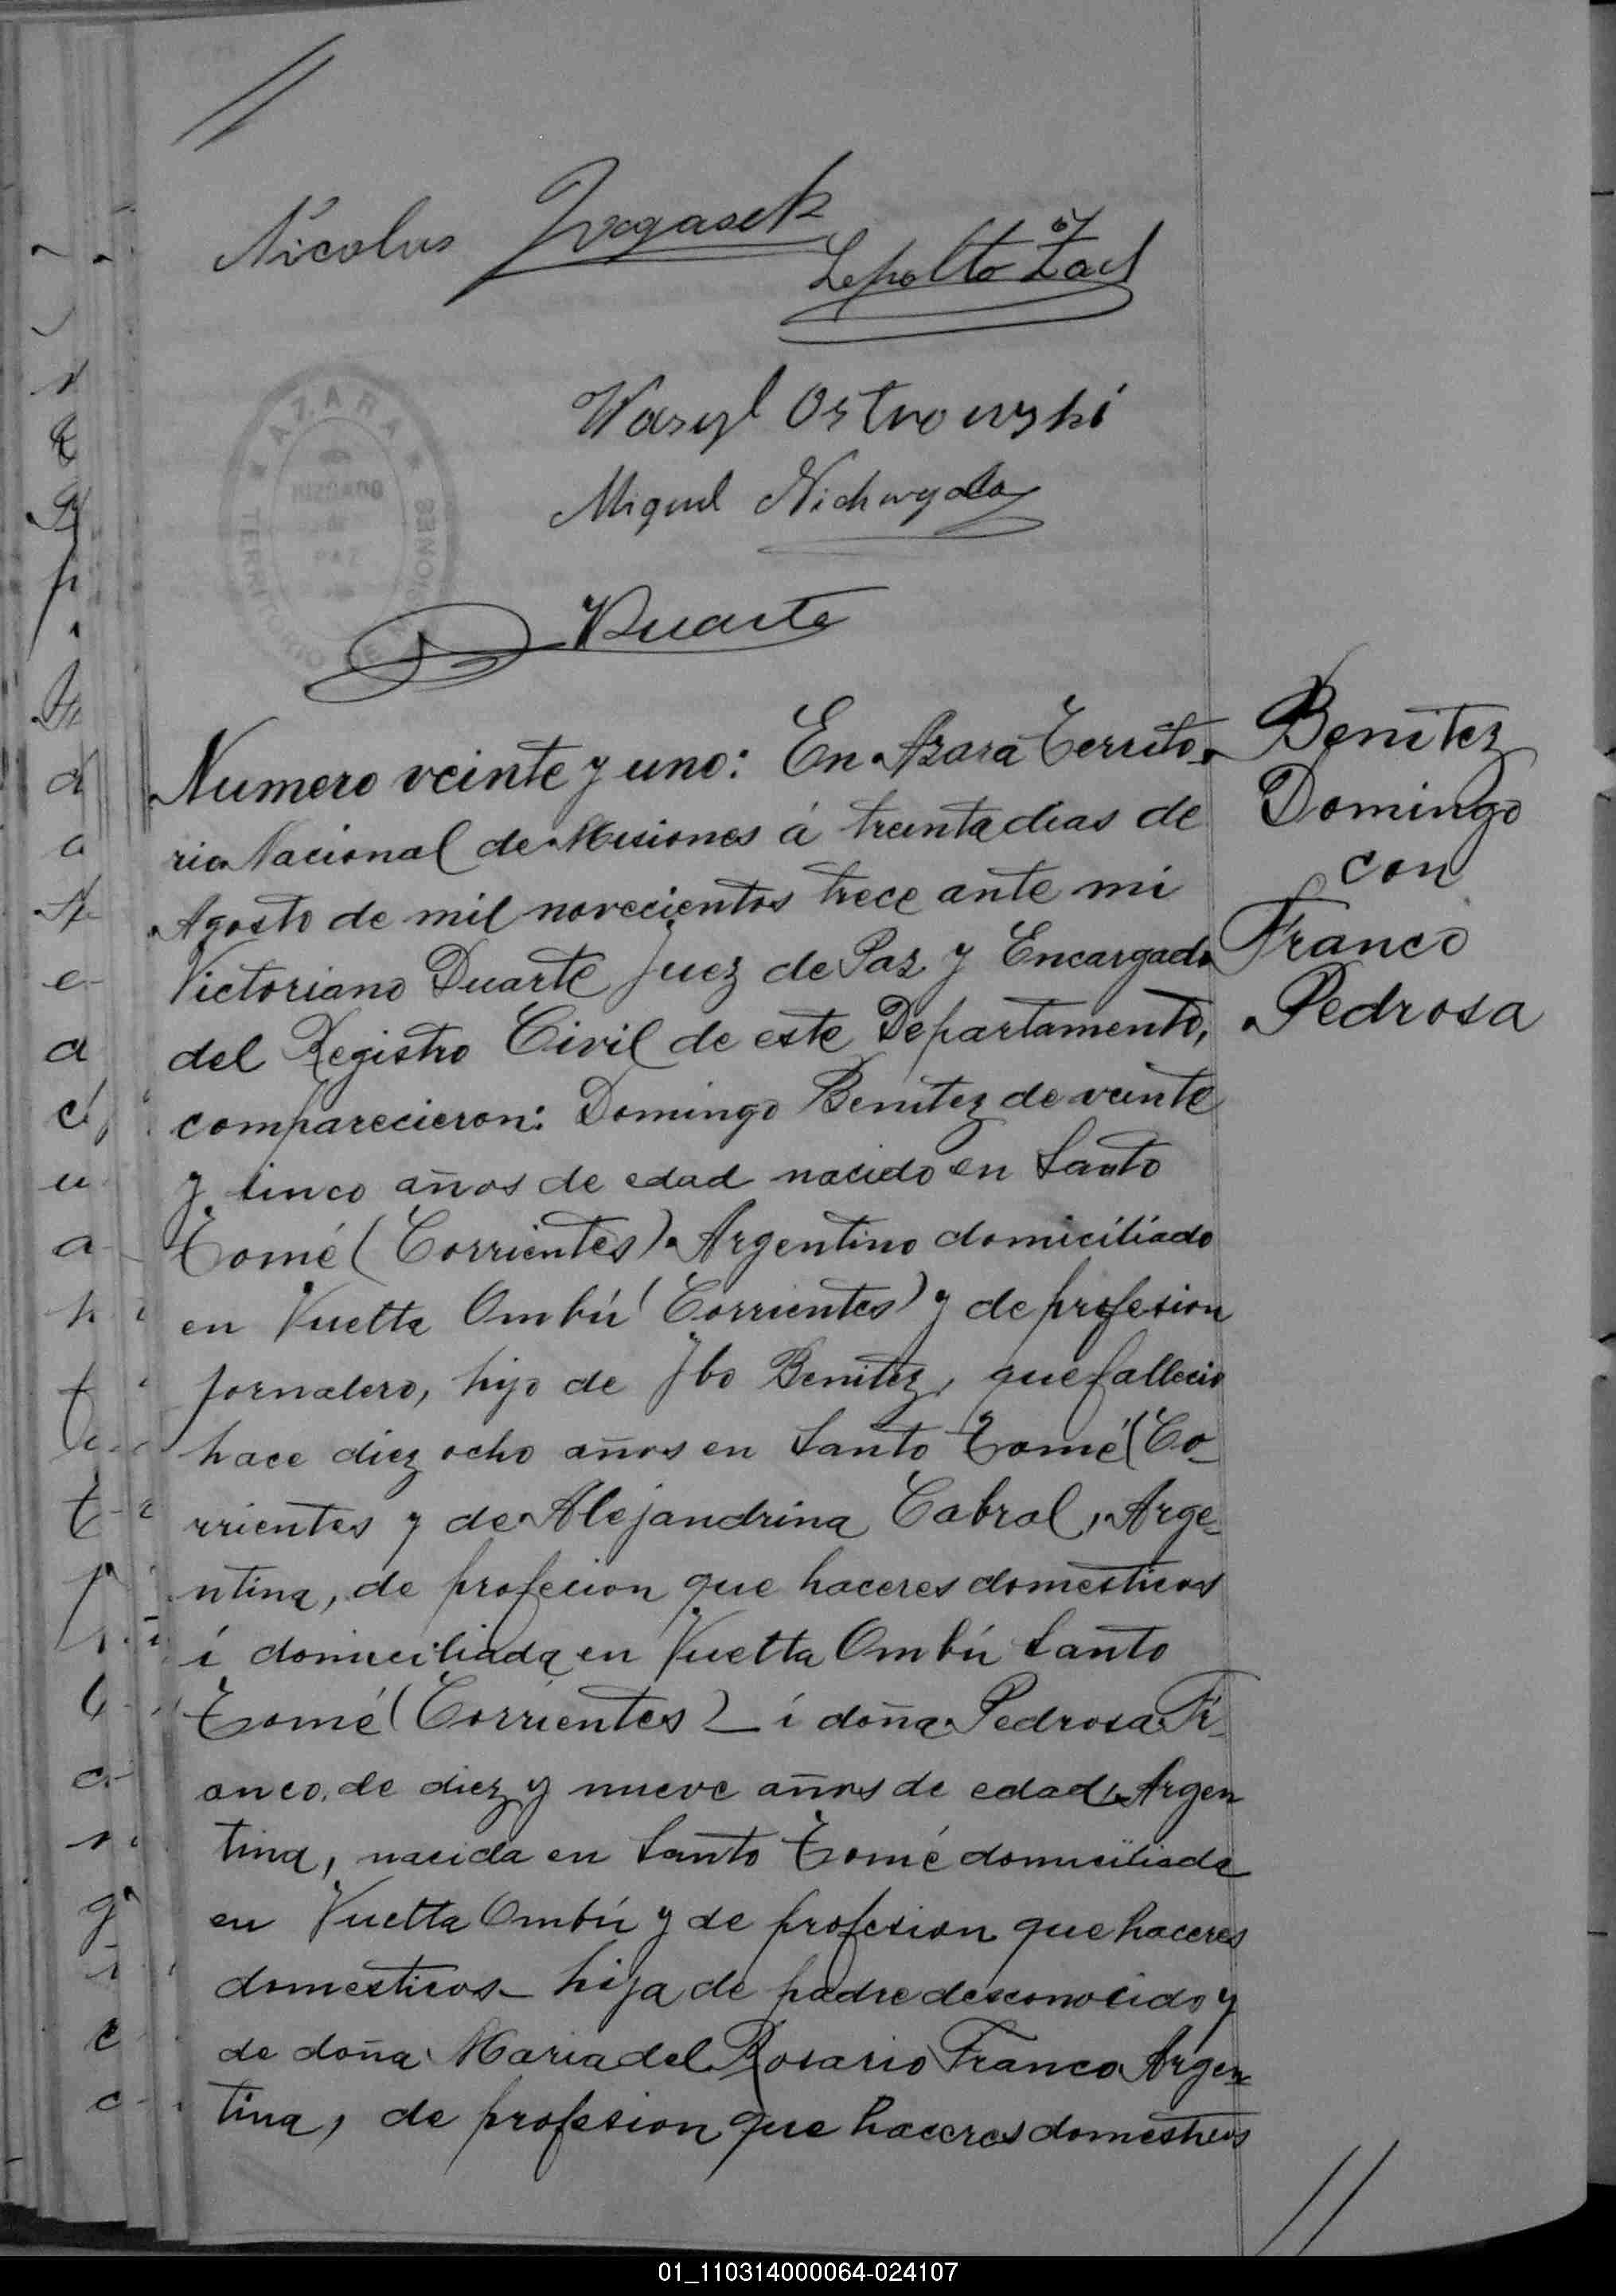 //
Nicolus
Lepolto Zad
Wasyl Ostrowski
Miguel
AZARA
JUZGADO
DE
PAZ
TERRITORIO DE MISIONES
VDuarte
Numero veinte y uno: En Azara Territo-
rio Nacional de Misiones á treinta dias de
Agosto de mil novecientos trece ante mi
Victoriano Duarte Juez de Paz y Encargado
del Registro Civil de este Departamento,
comparecieron: Domingo Benitez de veinte
y cinco años de edad nacido en Santo
Tomé (Corrientes) Argentino domiciliado
en Vuelta Ombú (Corrientes) y de profesion
jornalero, hijo de Ybo Benitez, que fallecio
hace diez ocho años en Santo Tomé (Co-
rrientes y de Alejandrina Cabral, Arge-
ntina, de profecion que haceres domesticos
i domiciliada en Vuelta Ombú Santo
Tomé (Corrientes) _ i doña Pedrosa Fr-
anco, de diez y nueve años de edad, Argen
tina, nacida en Santo Tomé domiciliada
en Vuelta Ombú y de profesion que haceres
domesticos_ hija de padre desconocido y
de doña Maria del Rosario Franco Argen-
tina, de profesion que haceres domesticos
//
Benitez
Domingo
con
Franco
Pedrosa
01_110314000064-024107